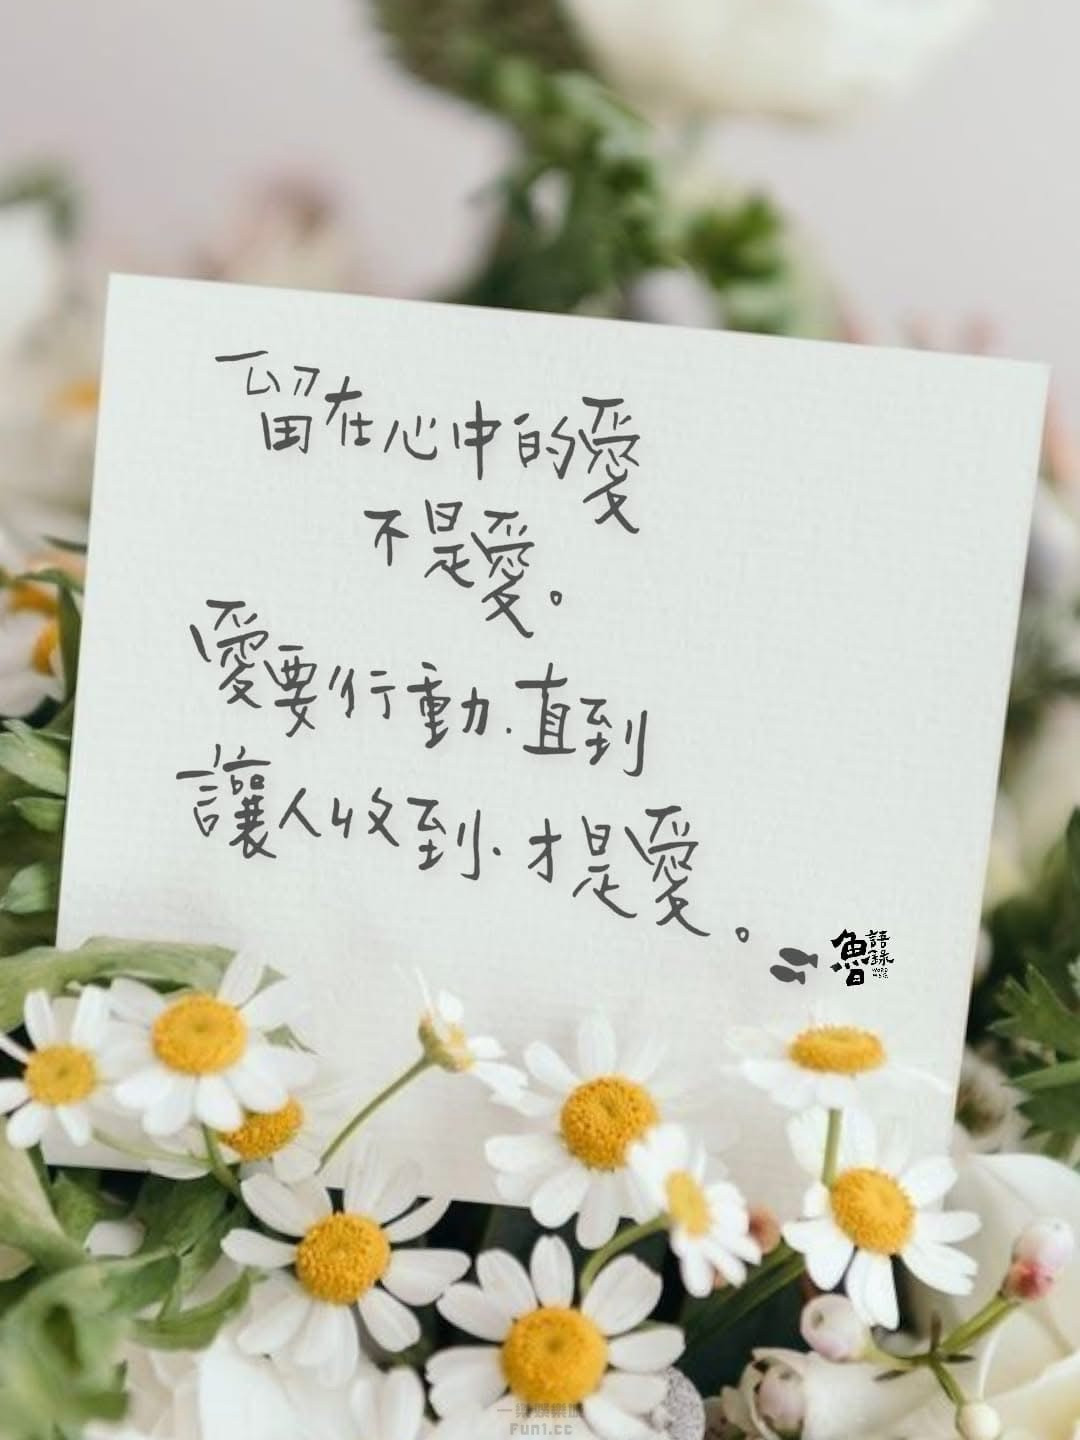 留在心中的愛
不是愛。
愛要行動.直到
讓人收到.才是愛。
魯
語
錄
Fun1.cc